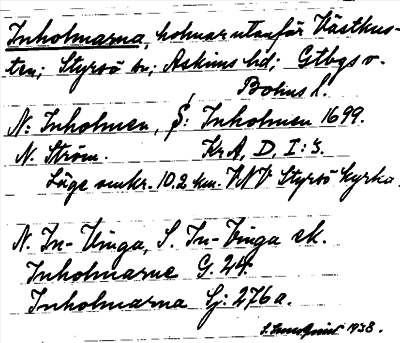 Inholmarna, holmar utanför Västkus-
ten; Styrsö sn; Askims hd; Gtbgs o.
Bohus l.
N: Inholmen, S: Inholmen 1699.
N. Ström. KrA, D. I: 3.
Läge omkr. 10.2 km. VNV Styrsö kyrka.
N. In-Vinga, S. In-Vinga ek.
Inholmarne G. 24.
Inholmarna Sj: 276 a.
1938.